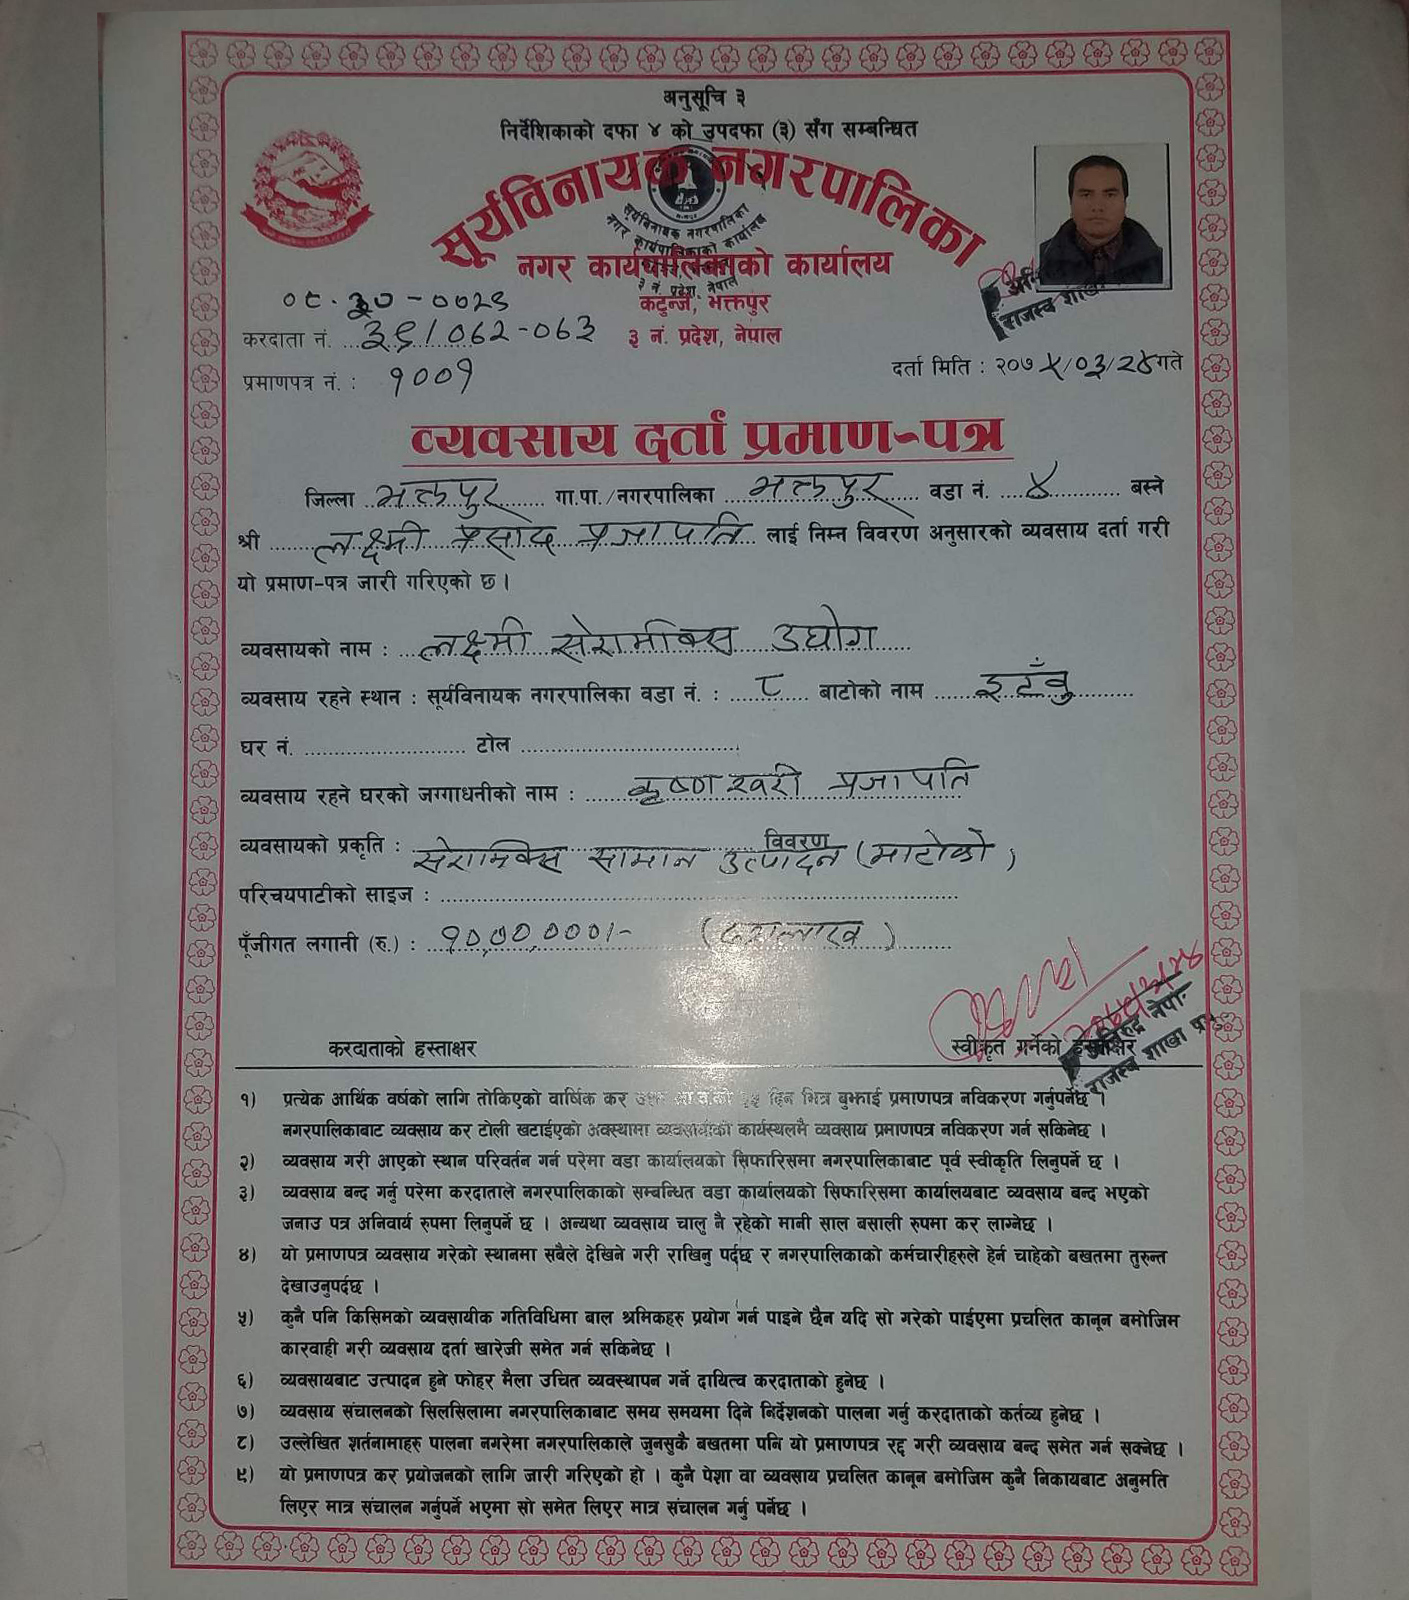 अनुसूचि ३
निर्देशिकाको दफा ४ को उपदफा (३) सँग सम्बन्धित
सूर्यविनायक नगरपालिका
सूर्यविनायक नगरपालिका
नगर कार्यपालिकाको कार्यालय
३ नं. प्रदेश, नेपाल
नगर कार्यपालिकाको कार्यालय
कटुन्जे, भक्तपुर
३ नं. प्रदेश, नेपाल
राजस्व शाखा
०८.३०-००२९
करदाता नं. ३९/०६२-०६३
प्रमाणपत्र नं. : १००१
दर्ता मिति : २०७५/०३/२४ गते
व्यवसाय दर्ता प्रमाण-पत्र
जिल्ला भक्तपुर गा.पा./नगरपालिका भक्तपुर वडा नं. ४ बस्ने
श्री लक्ष्मी प्रसाद प्रजापति लाई निम्न विवरण अनुसारको व्यवसाय दर्ता गरी
यो प्रमाण-पत्र जारी गरिएको छ।
व्यवसायको नाम : लक्ष्मी सेरामीक्स उद्योग
व्यवसाय रहने स्थान : सूर्यविनायक नगरपालिका वडा नं. : ८ बाटोको नाम
घर नं. टोल
व्यवसाय रहने घरको जग्गाधनीको नाम : कृष्ण प्रजापति
व्यवसायको प्रकृति : सेरामिक्स सामान उत्पादन (माटोको) विवरण
परिचयपाटीको साइज :
पूँजीगत लगानी (रु.) : १०,००,०००।- (दशलाख)
करदाताको हस्ताक्षर
स्वीकृत गर्नेको हस्ताक्षर
राजस्व शाखा
१) प्रत्येक आर्थिक वर्षको लागि तोकिएको वार्षिक कर दिन भित्र बुझाई प्रमाणपत्र नविकरण गर्नुपर्नेछ ।
नगरपालिकाबाट व्यवसाय कर टोली खटाईएको अवस्थामा व्यवसायीको कार्यस्थलमै व्यवसाय प्रमाणपत्र नविकरण गर्न सकिनेछ ।
२) व्यवसाय गरी आएको स्थान परिवर्तन गर्न परेमा वडा कार्यालयको सिफारिसमा नगरपालिकाबाट पूर्व स्वीकृति लिनुपर्ने छ ।
३) व्यवसाय बन्द गर्नु परेमा करदाताले नगरपालिकाको सम्बन्धित वडा कार्यालयको सिफारिसमा कार्यालयबाट व्यवसाय बन्द भएको
जनाउ पत्र अनिवार्य रुपमा लिनुपर्ने छ । अन्यथा व्यवसाय चालु नै रहेको मानी साल बसाली रुपमा कर लाग्नेछ ।
४) यो प्रमाणपत्र व्यवसाय गरेको स्थानमा सबैले देखिने गरी राखिनु पर्दछ र नगरपालिकाको कर्मचारीहरुले हेर्न चाहेको बखतमा तुरुन्त
देखाउनुपर्दछ ।
५) कुनै पनि किसिमको व्यवसायीक गतिविधिमा बाल श्रमिकहरु प्रयोग गर्न पाइने छैन यदि सो गरेको पाईएमा प्रचलित कानून बमोजिम
कारवाही गरी व्यवसाय दर्ता खारेजी समेत गर्न सकिनेछ ।
६) व्यवसायबाट उत्पादन हुने फोहर मैला उचित व्यवस्थापन गर्ने दायित्व करदाताको हुनेछ ।
७) व्यवसाय संचालनको सिलसिलामा नगरपालिकाबाट समय समयमा दिने निर्देशनको पालना गर्नु करदाताको कर्तव्य हुनेछ ।
८) उल्लेखित शर्तनामाहरु पालना नगरेमा नगरपालिकाले जुनसुकै बखतमा पनि यो प्रमाणपत्र रद्द गरी व्यवसाय बन्द समेत गर्न सक्नेछ ।
९) यो प्रमाणपत्र कर प्रयोजनको लागि जारी गरिएको हो । कुनै पेशा वा व्यवसाय प्रचलित कानून बमोजिम कुनै निकायबाट अनुमति
लिएर मात्र संचालन गर्नुपर्ने भएमा सो समेत लिएर मात्र संचालन गर्नु पर्नेछ ।